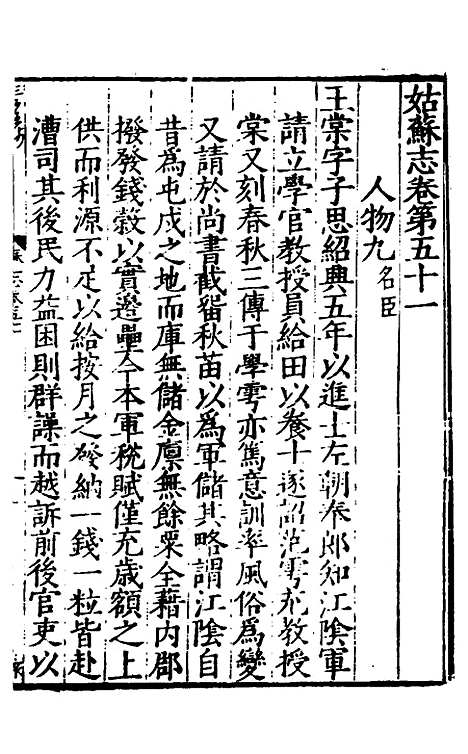 姑蘇志卷第五十一
人物九名臣
王棠字子思紹興五年以進士左朝奉郎知江陰軍
請立學官教授員給田以養士遂詔范雩充教授
棠又刻春秋三傳于學雩亦篤意訓率風俗爲變
又請於尚書截留秋苗以爲軍儲其略謂江陰自
昔爲屯戍之地而庫無儲金廩無餘粟全藉内郡
撥發錢穀以實邊壘今本軍稅賦僅充歲額之上
供而利源不足以給按月之發納一錢一粒皆赴
漕司其後民力益困則群譟而越訴前後官吏以